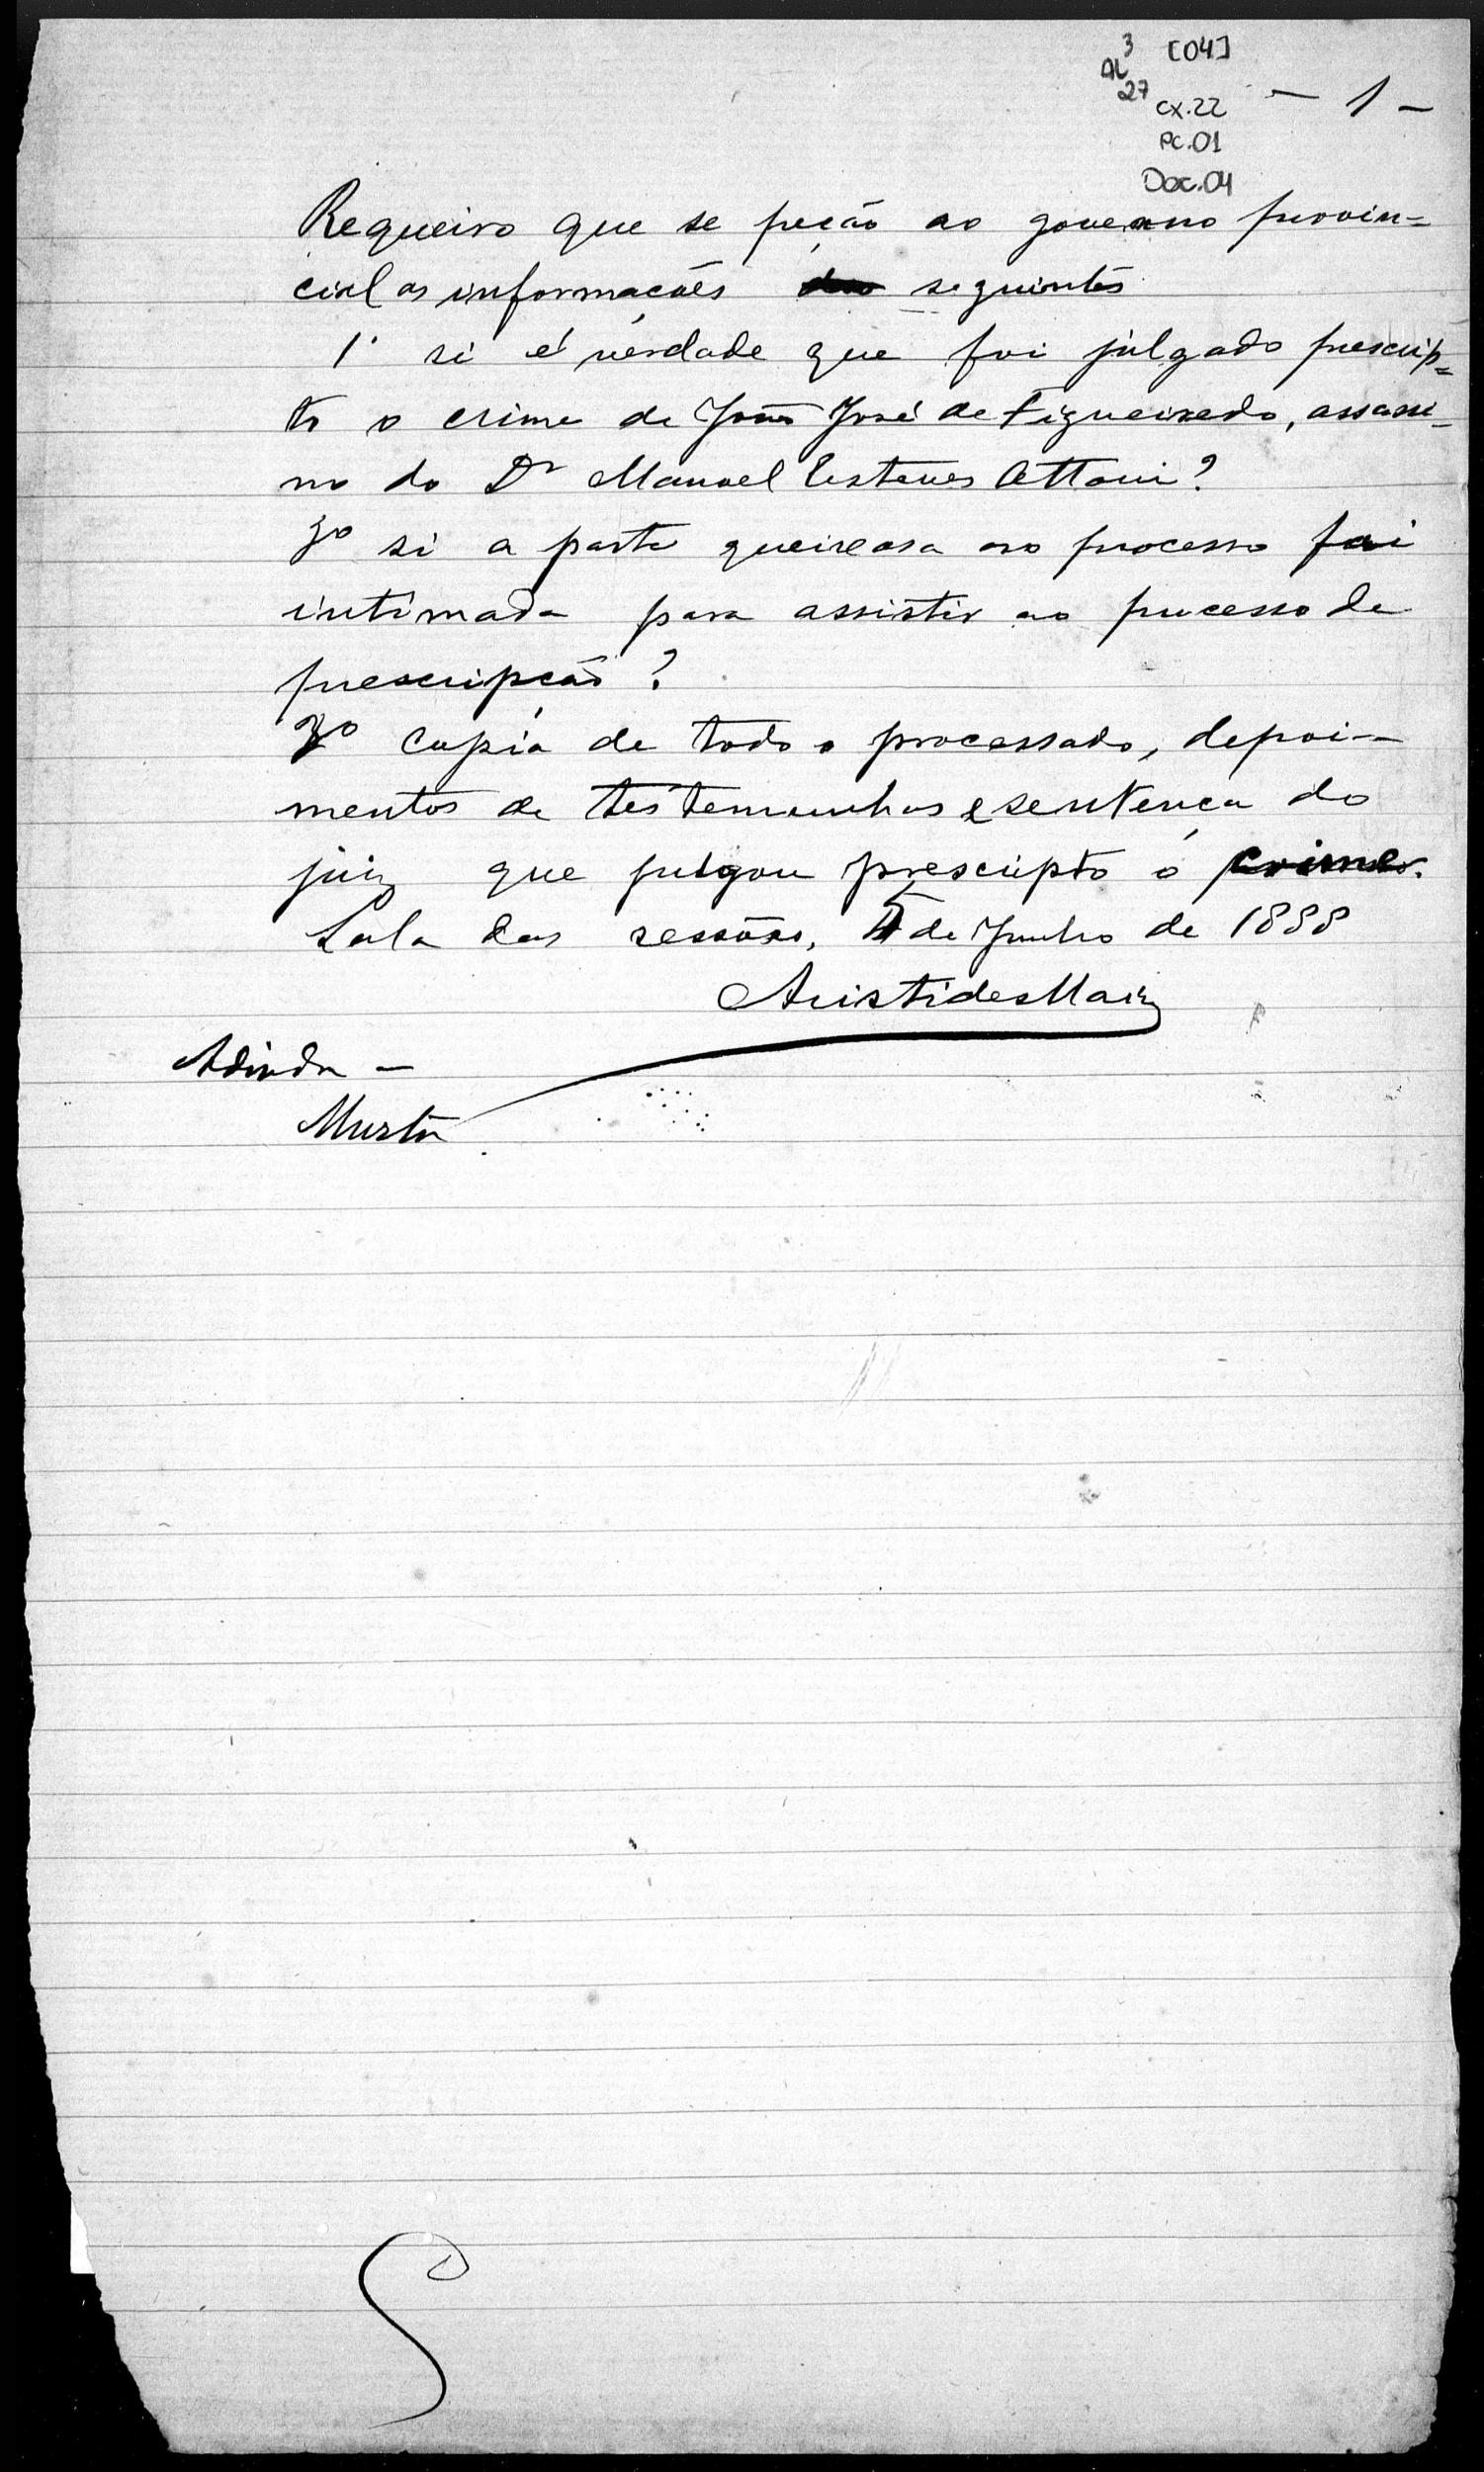 AL 3 27 [04]
cx.22 - 1 -
PC.01
Doc.04
Requeiro que se peção ao governo provin=
cial as informações seguintes
1º si é verdade que foi julgado prescrip=
to o crime de João José de Figueiredo, assassi=
no do Dr Manoel Esteves Ottoni?
2º si a parte queixosa no processo foi
intimada para assistir ao processo de
prescripção?
3º Copia de todo o processado, depoi-
mentos de testemunhas e sentença do
juiz que julgou prescripto o crime.
Sala das sessões, 5 de Junho de 1888
Aristides Maia
Adiada -
Murta